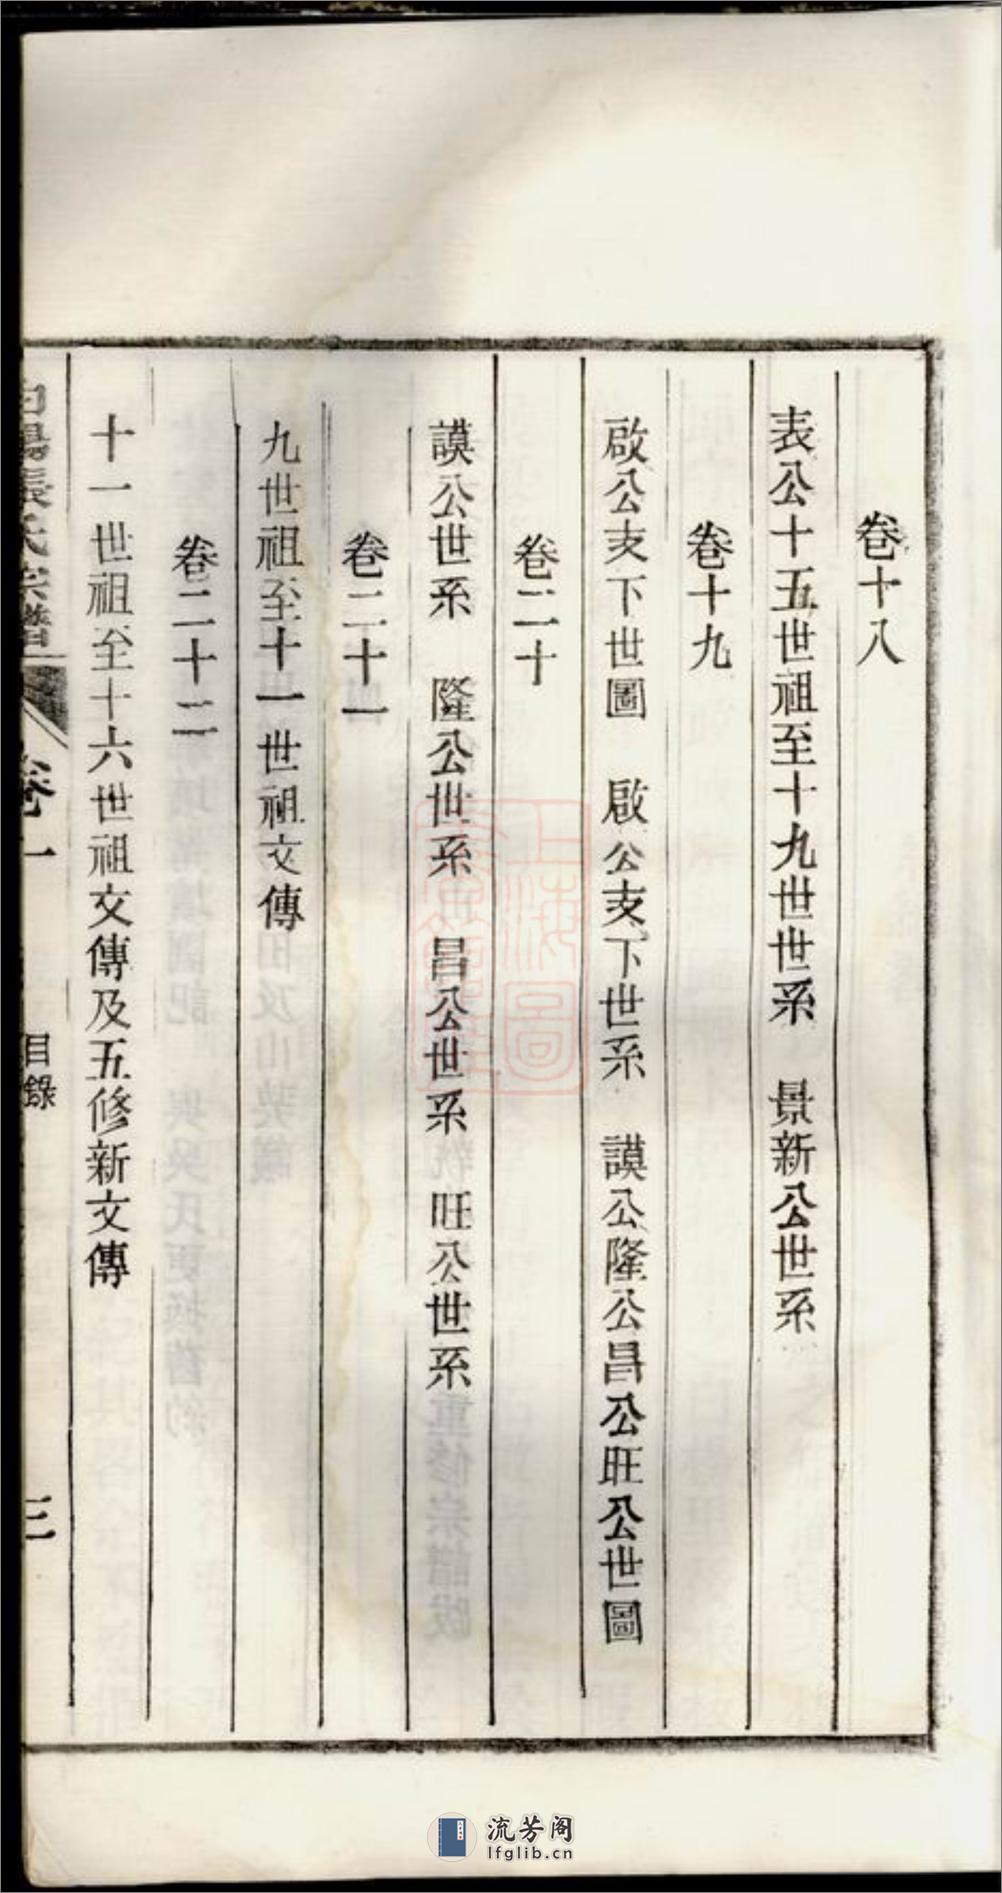 卷十八
表公十五世祖至十九世世系　景新公世系
卷十九
啟公支下世圖　啟公支下世系　謨公隆公昌公旺公世圖
卷二十
謨公世系　隆公世系　昌公世系　旺公世系
卷二十一
九世祖至十一世祖文傳
卷二十二
十一世祖至十六世祖文傳及五修新文傳
張氏宗譜　卷一　目錄　三
上海圖
流芳阁
lfglib.cn